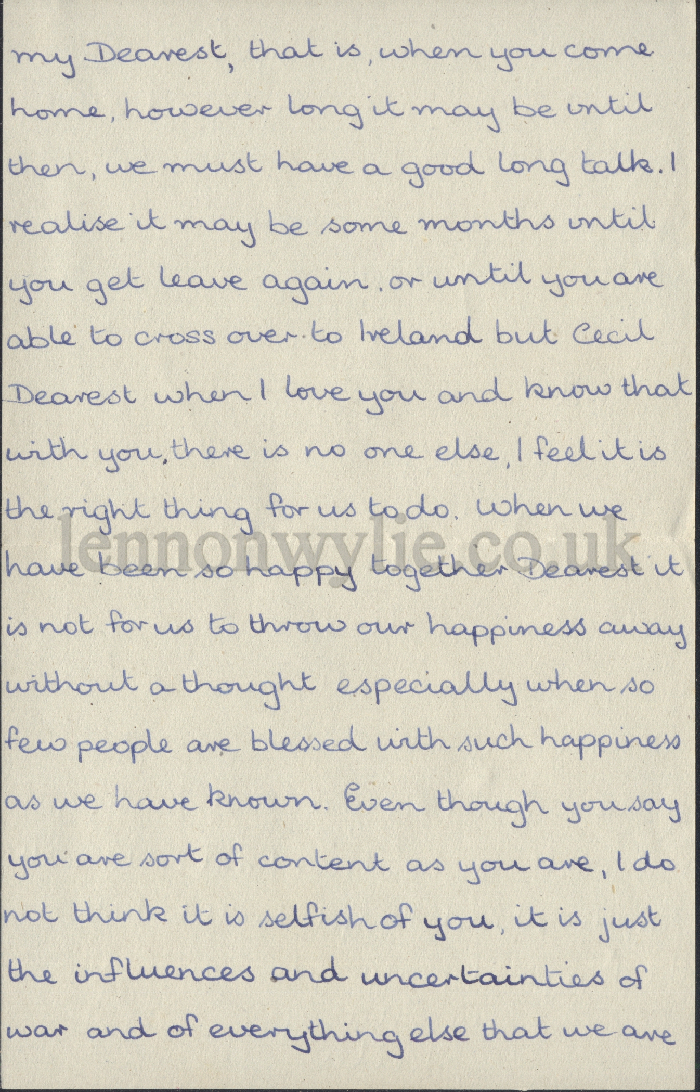 my Dearest, that is, when you come
home, however long it may be until
then, we must have a good long talk. I
realise it may be some months until
you get leave again. or until you are
able to cross over to Ireland but Cecil
Dearest when I love you and know that
with you, there is no one else, I feel it is
the right thing for us to do. When we
lennonwylie.co.uk
have been so happy together Dearest it
is not for us to throw our happiness away
without a thought especially when so
few people are blessed with such happiness
as we have known. Even though you say
you are sort of content as you are, I do
not think it is selfish of you, it is just
the influences and uncertainties of
war and of everything else that we are